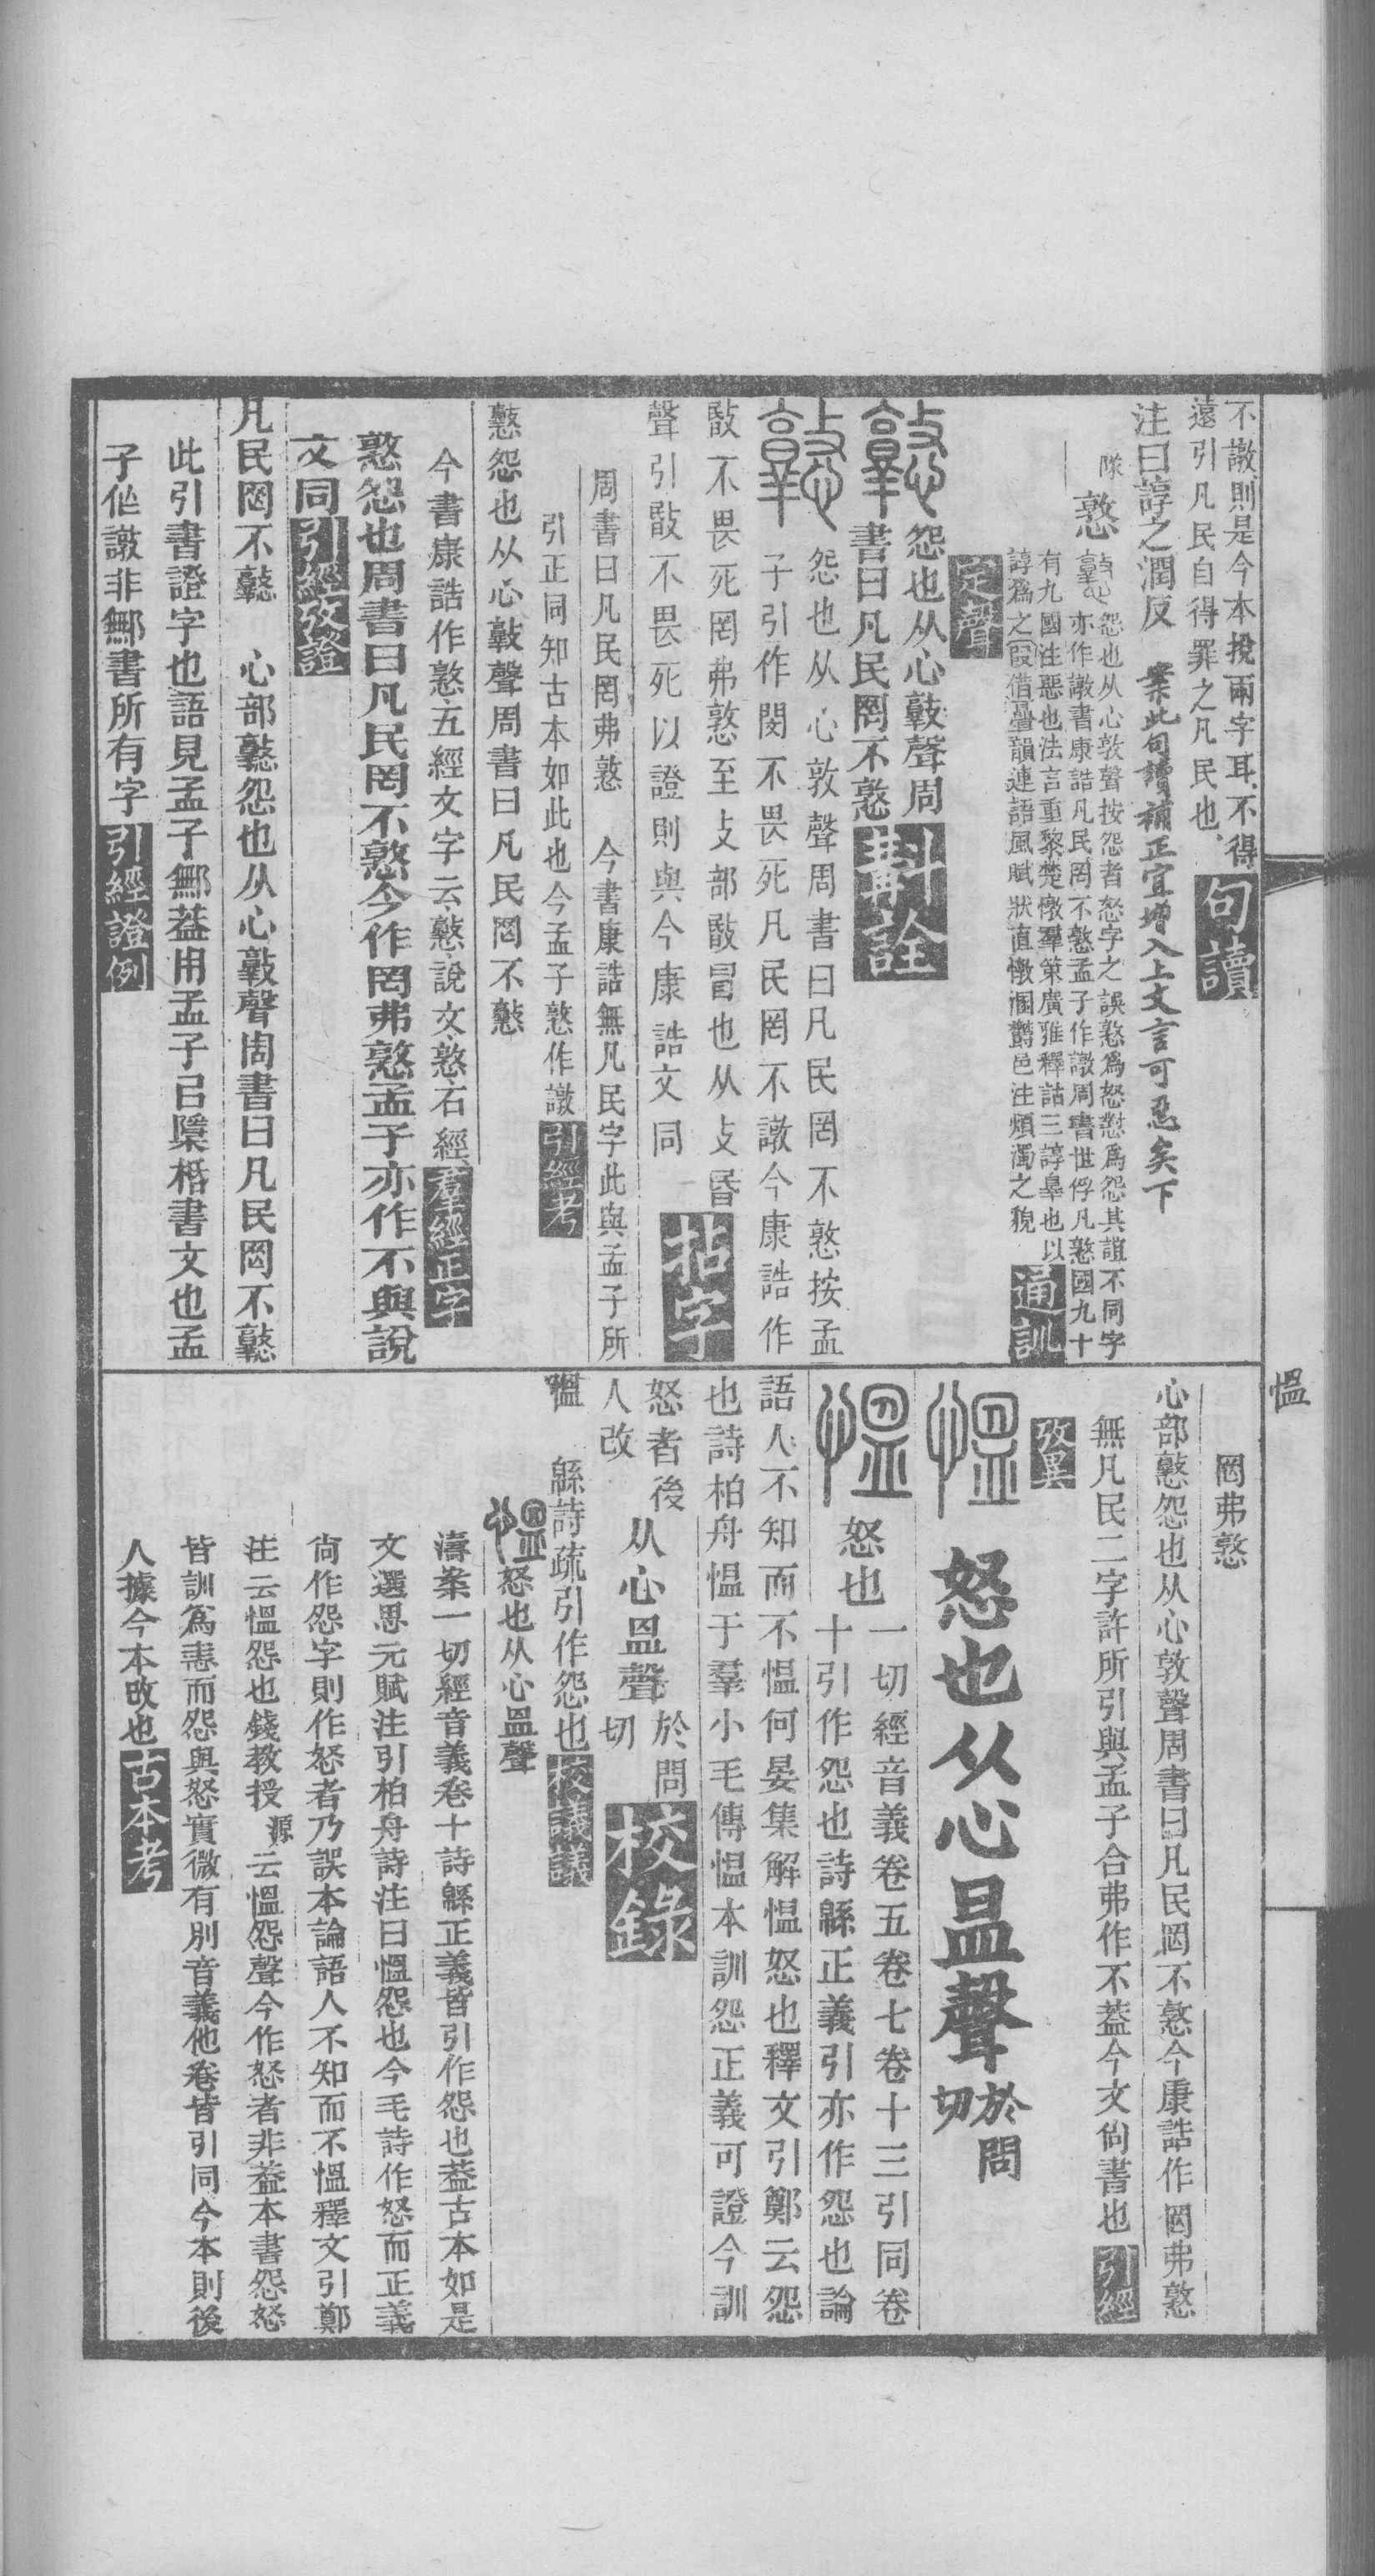 不譈則是今本挩兩字耳不得
遠引凡民自得罪之凡民也句讀
注曰諄之潤反　案此句讀補正宜增入上文言可惡矣下
隊　憝　怨也从心敦聲按怨者怒字之誤憝爲怒懟爲怨其誼不同字
亦作譈書康誥凡民罔不憝孟子作譈周書世俘凡憝國九十
有九國注惡也法言重黎楚憞羣策廣雅釋詁三諄辠也以
諄爲之叚借疊韻連語風賦狀直憞溷鬱邑注煩濁之貌通訓
定聲
怨也从心敦聲周
書曰凡民罔不憝斠詮
怨也从心敦聲周書曰凡民罔不憝按孟
子引作閔不畏死凡民罔不譈今康誥作
敯不畏死罔弗憝至攴部敯冒也从攴昏
聲引敯不畏死以證則與今康誥文同　拈字
周書曰凡民罔弗憝　今書康誥無凡民字此與孟子所
引正同知古本如此也今孟子憝作譈引經考
憝怨也从心敦聲周書曰凡民罔不憝
今書康誥作憝五經文字云憝說文憝石經羣經正字
憝怨也周書曰凡民罔不憝今作罔弗憝孟子亦作不與說
文同引經攷證
凡民罔不憝　心部憝怨也从心敦聲周書曰凡民罔不憝
此引書證字也語見孟子鄦葢用孟子㠯檃桰書文也孟
子作譈非鄦書所有字引經證例
愠
罔弗憝
心部憝怨也从心敦聲周書曰凡民罔不憝今康誥作罔弗憝
無凡民二字許所引與孟子合弗作不葢今文尙書也引經
攷異
愠　怒也从心昷聲於問切
愠　怒也一切經音義卷五卷七卷十三引同卷
十引作怨也詩緜正義引亦作怨也論
語人不知而不愠何晏集解愠怒也釋文引鄭云怨
也詩柏舟愠于羣小毛傳愠本訓怨正義可證今訓
怒者後人改　从心昷聲於問切　校錄
愠　緜詩疏引作怨也校議議
愠　怒也从心昷聲
濤案一切經音義卷十詩緜正義皆引作怨也葢古本如是
文選思元賦注引柏舟詩注曰愠怨也今毛詩作怒而正義
尙作怨字則作怒者乃誤本論語人不知而不愠釋文引鄭
注云愠怨也錢教授源云愠怨聲今作怒者非葢本書怨怒
皆訓爲恚而怨與怒實微有別音義他卷皆引同今本則後
人據今本改也古本考